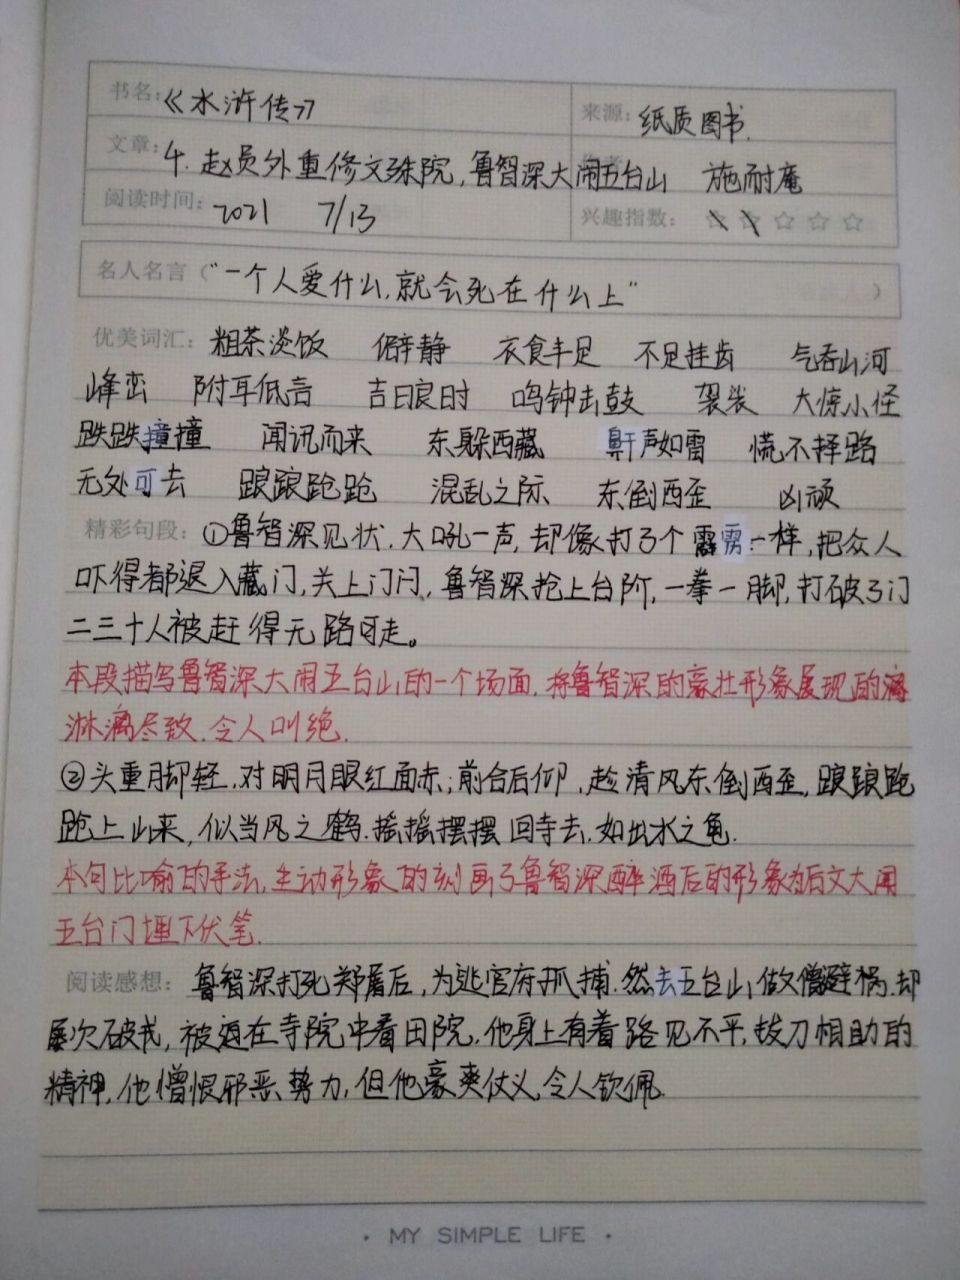 书名：《水浒传》 来源：纸质图书.
文章：4. 赵员外重修文殊院,鲁智深大闹五台山 施耐庵
阅读时间：2021 7/13 兴趣指数：☆☆☆☆☆
名人名言（“一个人爱什么,就会死在什么上” ）
优美词汇：粗茶淡饭 僻静 衣食丰足 不足挂齿 气吞山河
峰峦 附耳低言 吉日良时 鸣钟击鼓 袈裟 大惊小怪
跌跌撞撞 闻讯而来 东躲西藏 鼾声如雷 慌不择路
无处可去 踉踉跄跄 混乱之际 东倒西歪 凶顽
精彩句段：①鲁智深见状,大吼一声,却像打了个霹雳一样,把众人
吓得都退入藏门,关上门闩,鲁智深抢上台阶,一拳一脚,打破了门
二三十人被赶得无路可走。
本段描写鲁智深大闹五台山的一个场面.将鲁智深的豪壮形象展现的漓
淋漓尽致.令人叫绝.
②头重脚轻,对明月眼红面赤;前合后仰,趁清风东倒西歪,踉踉跄
跄上山来,似当风之鹤.摇摇摆摆回寺去,如出水之龟.
本句比喻的手法,生动形象的刻画了鲁智深醉酒后的形象为后文大闹
五台门埋下伏笔.
阅读感想：鲁智深打死郑屠后,为逃官府抓捕.然去五台山,做僧避祸.却
屡次破戒,被迫在寺院中看田院.他身上有着路见不平,拔刀相助的
精神,他憎恨邪恶势力,但他豪爽仗义,令人钦佩.
· MY SIMPLE LIFE ·